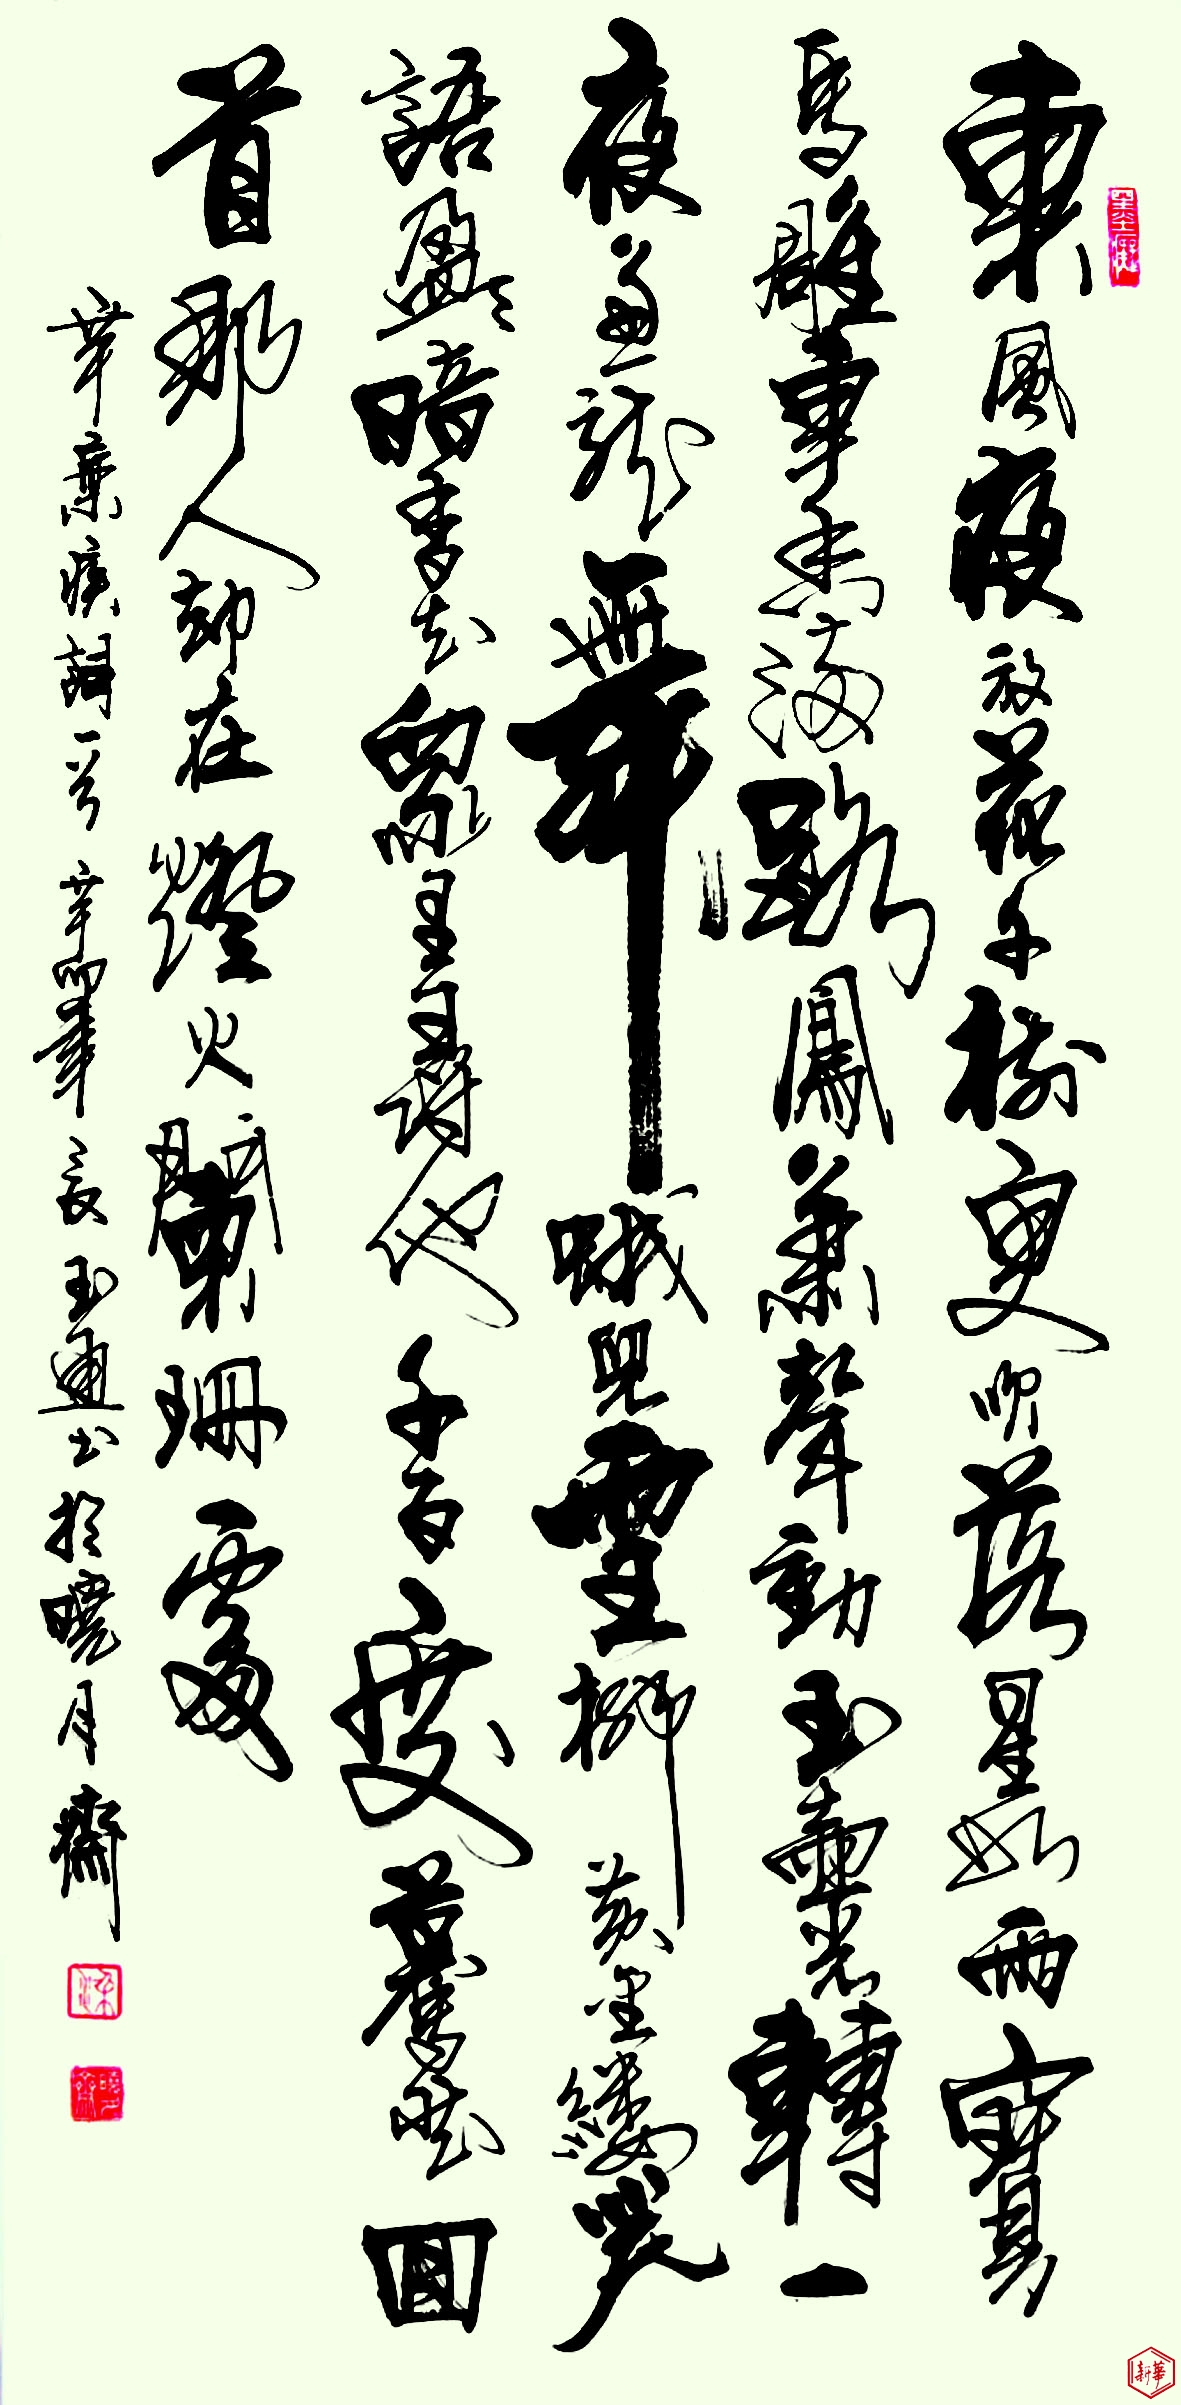 東風夜放花千樹更吹落星如雨寶
馬雕車香滿路鳳簫聲動玉壺光轉一
夜魚龍舞蛾兒雪柳黃金縷笑
語盈盈暗香去衆里尋他千百度驀然回
首那人却在燈火闌珊處
辛棄疾詞一首辛卯年長玉通书於曉月齋
新華